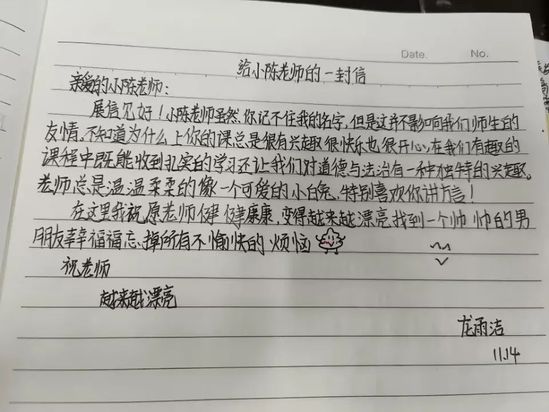 Date. No.
给小陈老师的一封信
亲爱的小陈老师：
展信见好！小陈老师虽然你记不住我的名字，但是这并不影响向我们师生的
友情。不知道为什么上你的课总是很有兴趣很快乐也很开心，在我们有趣的
课程中既能收到扎实的学习还让我们对道德与法治有一种独特的兴趣。
老师总是温温柔柔的像一个可爱的小白兔，特别喜欢你讲方言！
在这里我祝愿老师健健康康，变得越来越漂亮找到一个帅帅的男
朋友幸幸福福忘、掉所有不愉快的烦恼
祝老师
越来越漂亮
龙雨洁
11.14